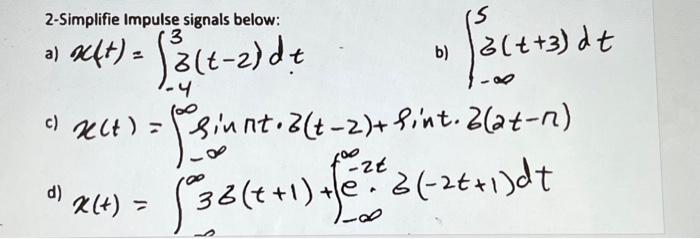 2-Simplifie Impulse signals below:
a) x(t) = ∫_{-4}^{3} δ(t-2) dt b) ∫_{-∞}^{5} δ(t+3) dt
c) x(t) = ∫_{-∞}^{∞} sin πt · δ(t-2) + sint · δ(2t-π)
d) x(t) = ∫_{-∞}^{∞} 3δ(t+1) + ∫_{-∞}^{∞} e^{-2t} · δ(-2t+1) dt